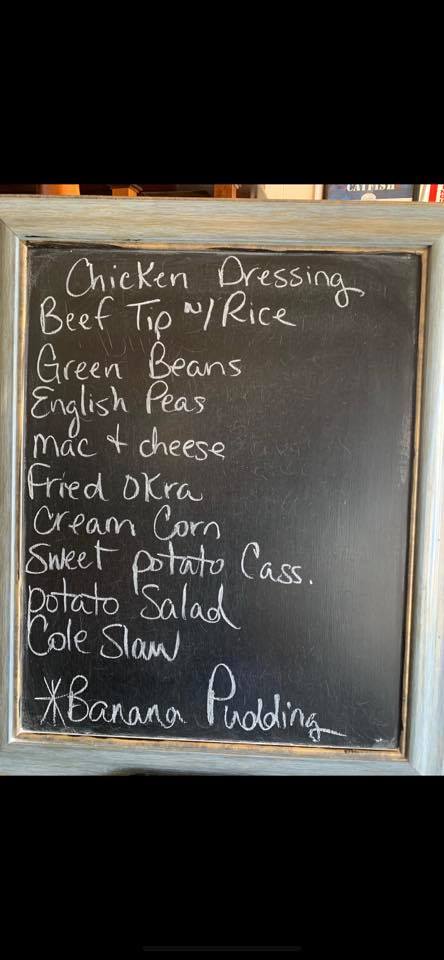 CATFISH
Chicken Dressing
Beef Tip w/ Rice
Green Beans
English Peas
Mac + cheese
Fried Okra
Cream Corn
Sweet potato Cass.
Potato Salad
Cole Slaw
*Banana Pudding